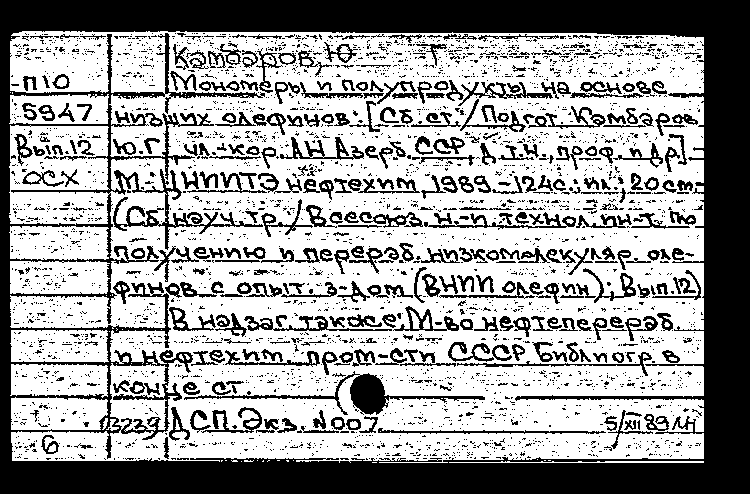 Камбаров, Ю Г
П10 Мономеры и полупродукты на основе
5947 низших олефинов: [Сб. ст. / Подгот. Камбаров
Вып.12 Ю.Г., чл.-кор. АН Азерб. ССР, д.т.н., проф. и др.] -
ОСХ М.: ЦНИИТЭнефтехим, 1989. - 124с.: ил.; 20см-
(Сб. науч. тр. / Всесоюз. н.-и. технол. ин-т по
получению и перераб. низкомолекуляр. оле-
финов с опыт. з-дом (ВНИИ олефин); Вып.12)
В надзаг. также: М-во нефтеперераб.
и нефтехим. пром-сти СССР. Библиогр. в
конце ст.
13239 ДСП. Экз. №007 5/XII 89
6